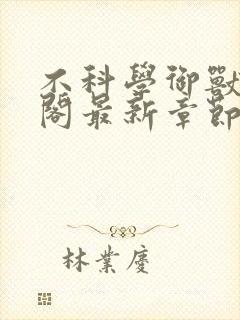 不科學御獸
閣最新章節
林業慶